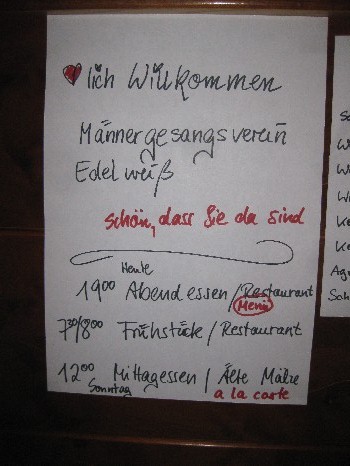 ❤lich Willkommen
Männergesangsverein
Edelweiß
schön, dass Sie da sind
Heute
19⁰⁰ Abendessen / Restaurant
Menü
7³⁰/8⁰⁰ Frühstück / Restaurant
12⁰⁰ Mittagessen / Alte
Sonntag a la carte